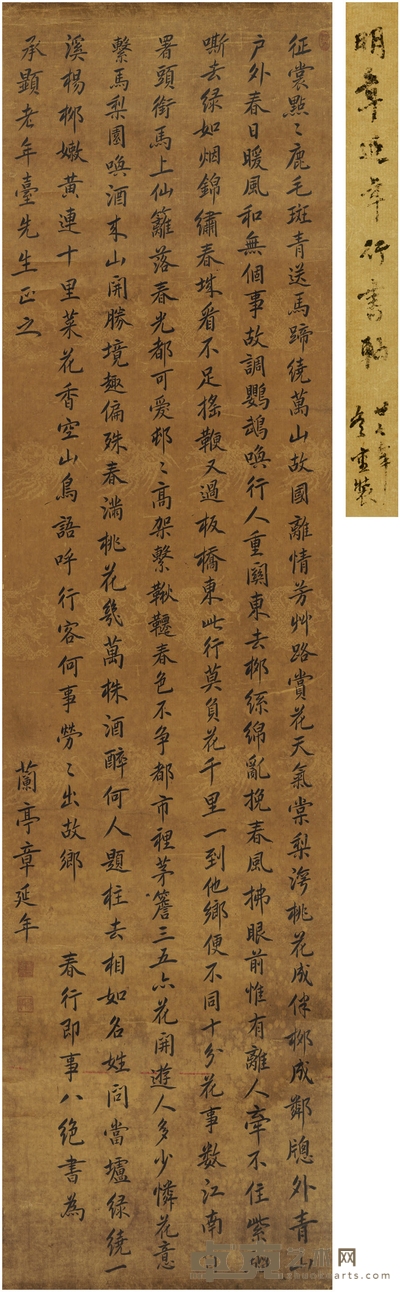 明章延年行書軸
征裳點點鹿毛斑青送馬蹄繞萬山故國離情芳艸路賞花天氣棠梨灣桃花成伴柳成鄰牕外青山
户外春日暖風和無個事故調鸚鵡喚行人重關東去柳絲綿亂挽春風拂眼前惟有離人牽不住紫騮
嘶去綠如烟錦繡春城看不足搖鞭又過板橋東此行莫負花千里一到他鄉便不同十分花事數江南
署頭銜馬上仙籬落春光都可愛邨邨高架繫鞦韆春色不争都市裡茅簷三五亦花開遊人多少憐花意
繫馬梨園喚酒来山開勝境趣偏殊春滿桃花幾萬株酒醉何人題柱去相如名姓問當壚綠繞一
溪楊柳嫩黄連十里菜花香空山鳥語呼行客何事勞勞出故鄉 春行即事八絕書為
承顯老年臺先生正之
蘭亭章延年